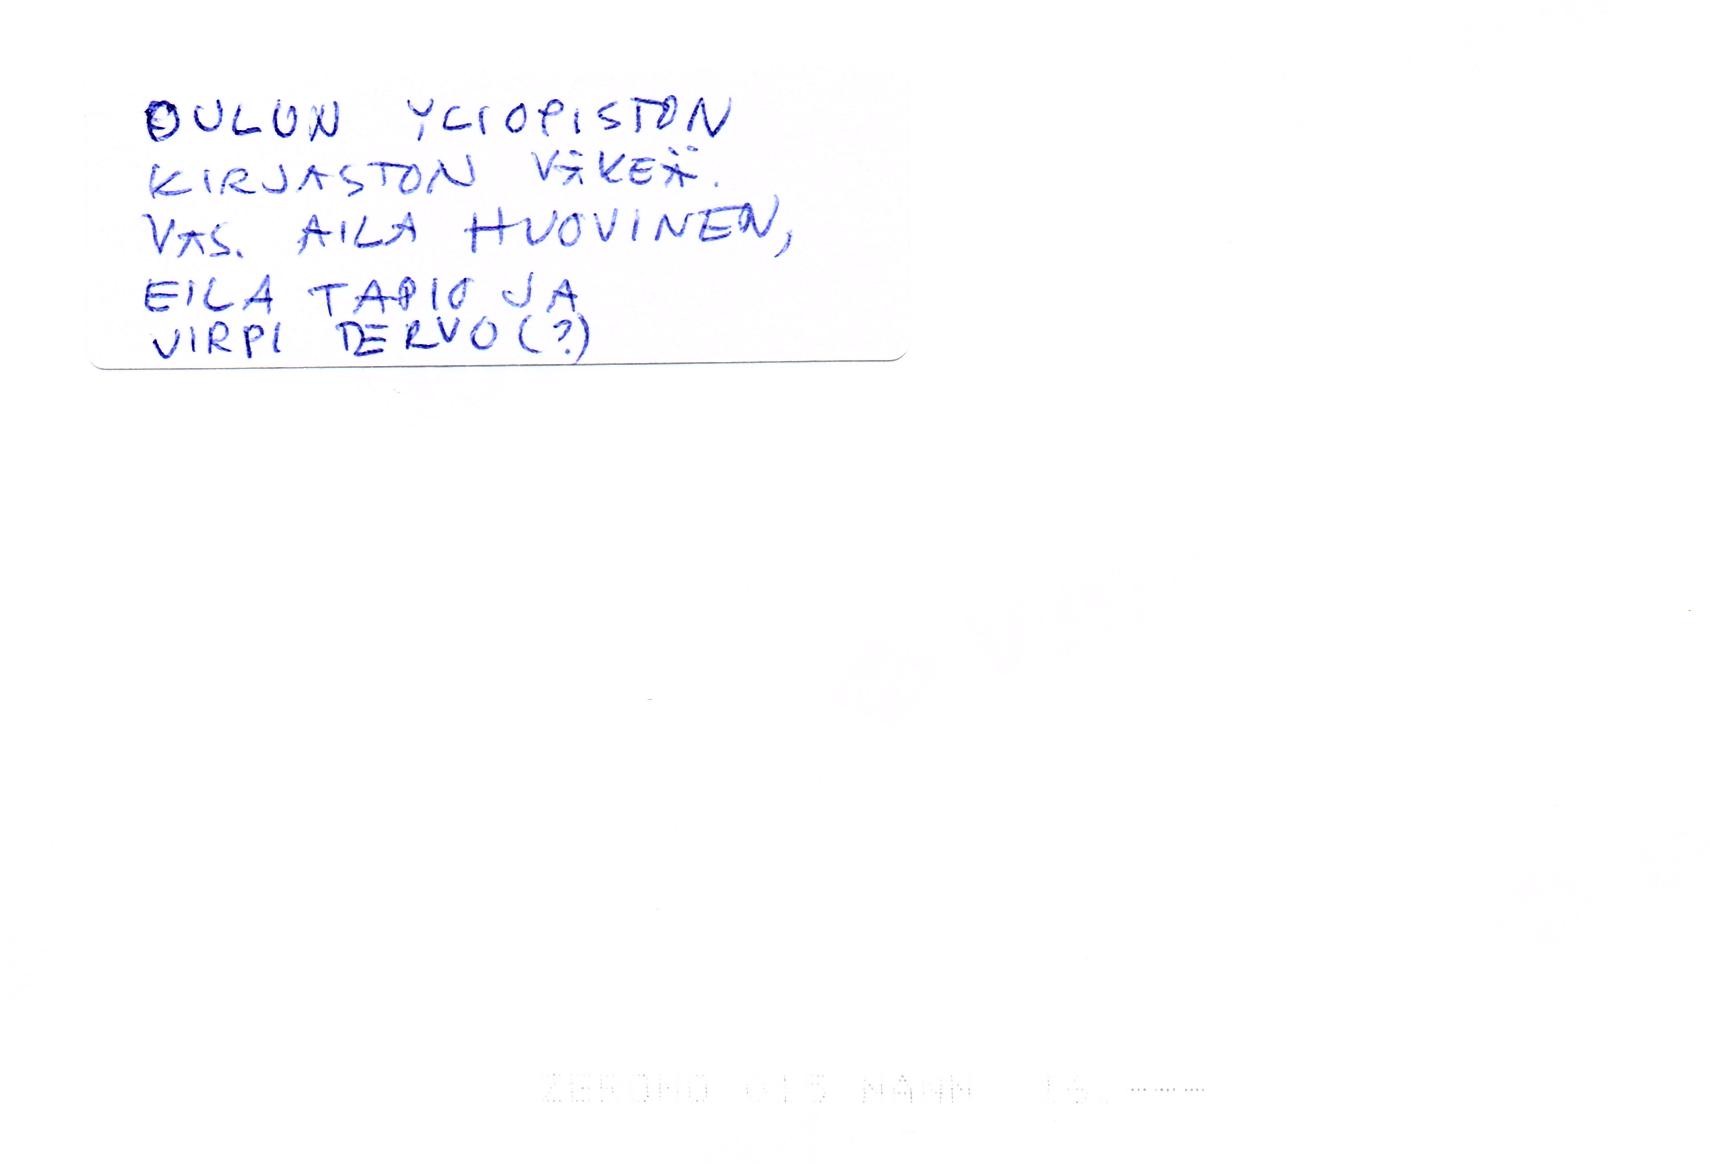 OULUN YLIOPISTON
KIRJASTON VÄKEÄ.
VAS. AILA HUOVINEN,
EILA TAPIO JA
VIRPI DERVO(?)